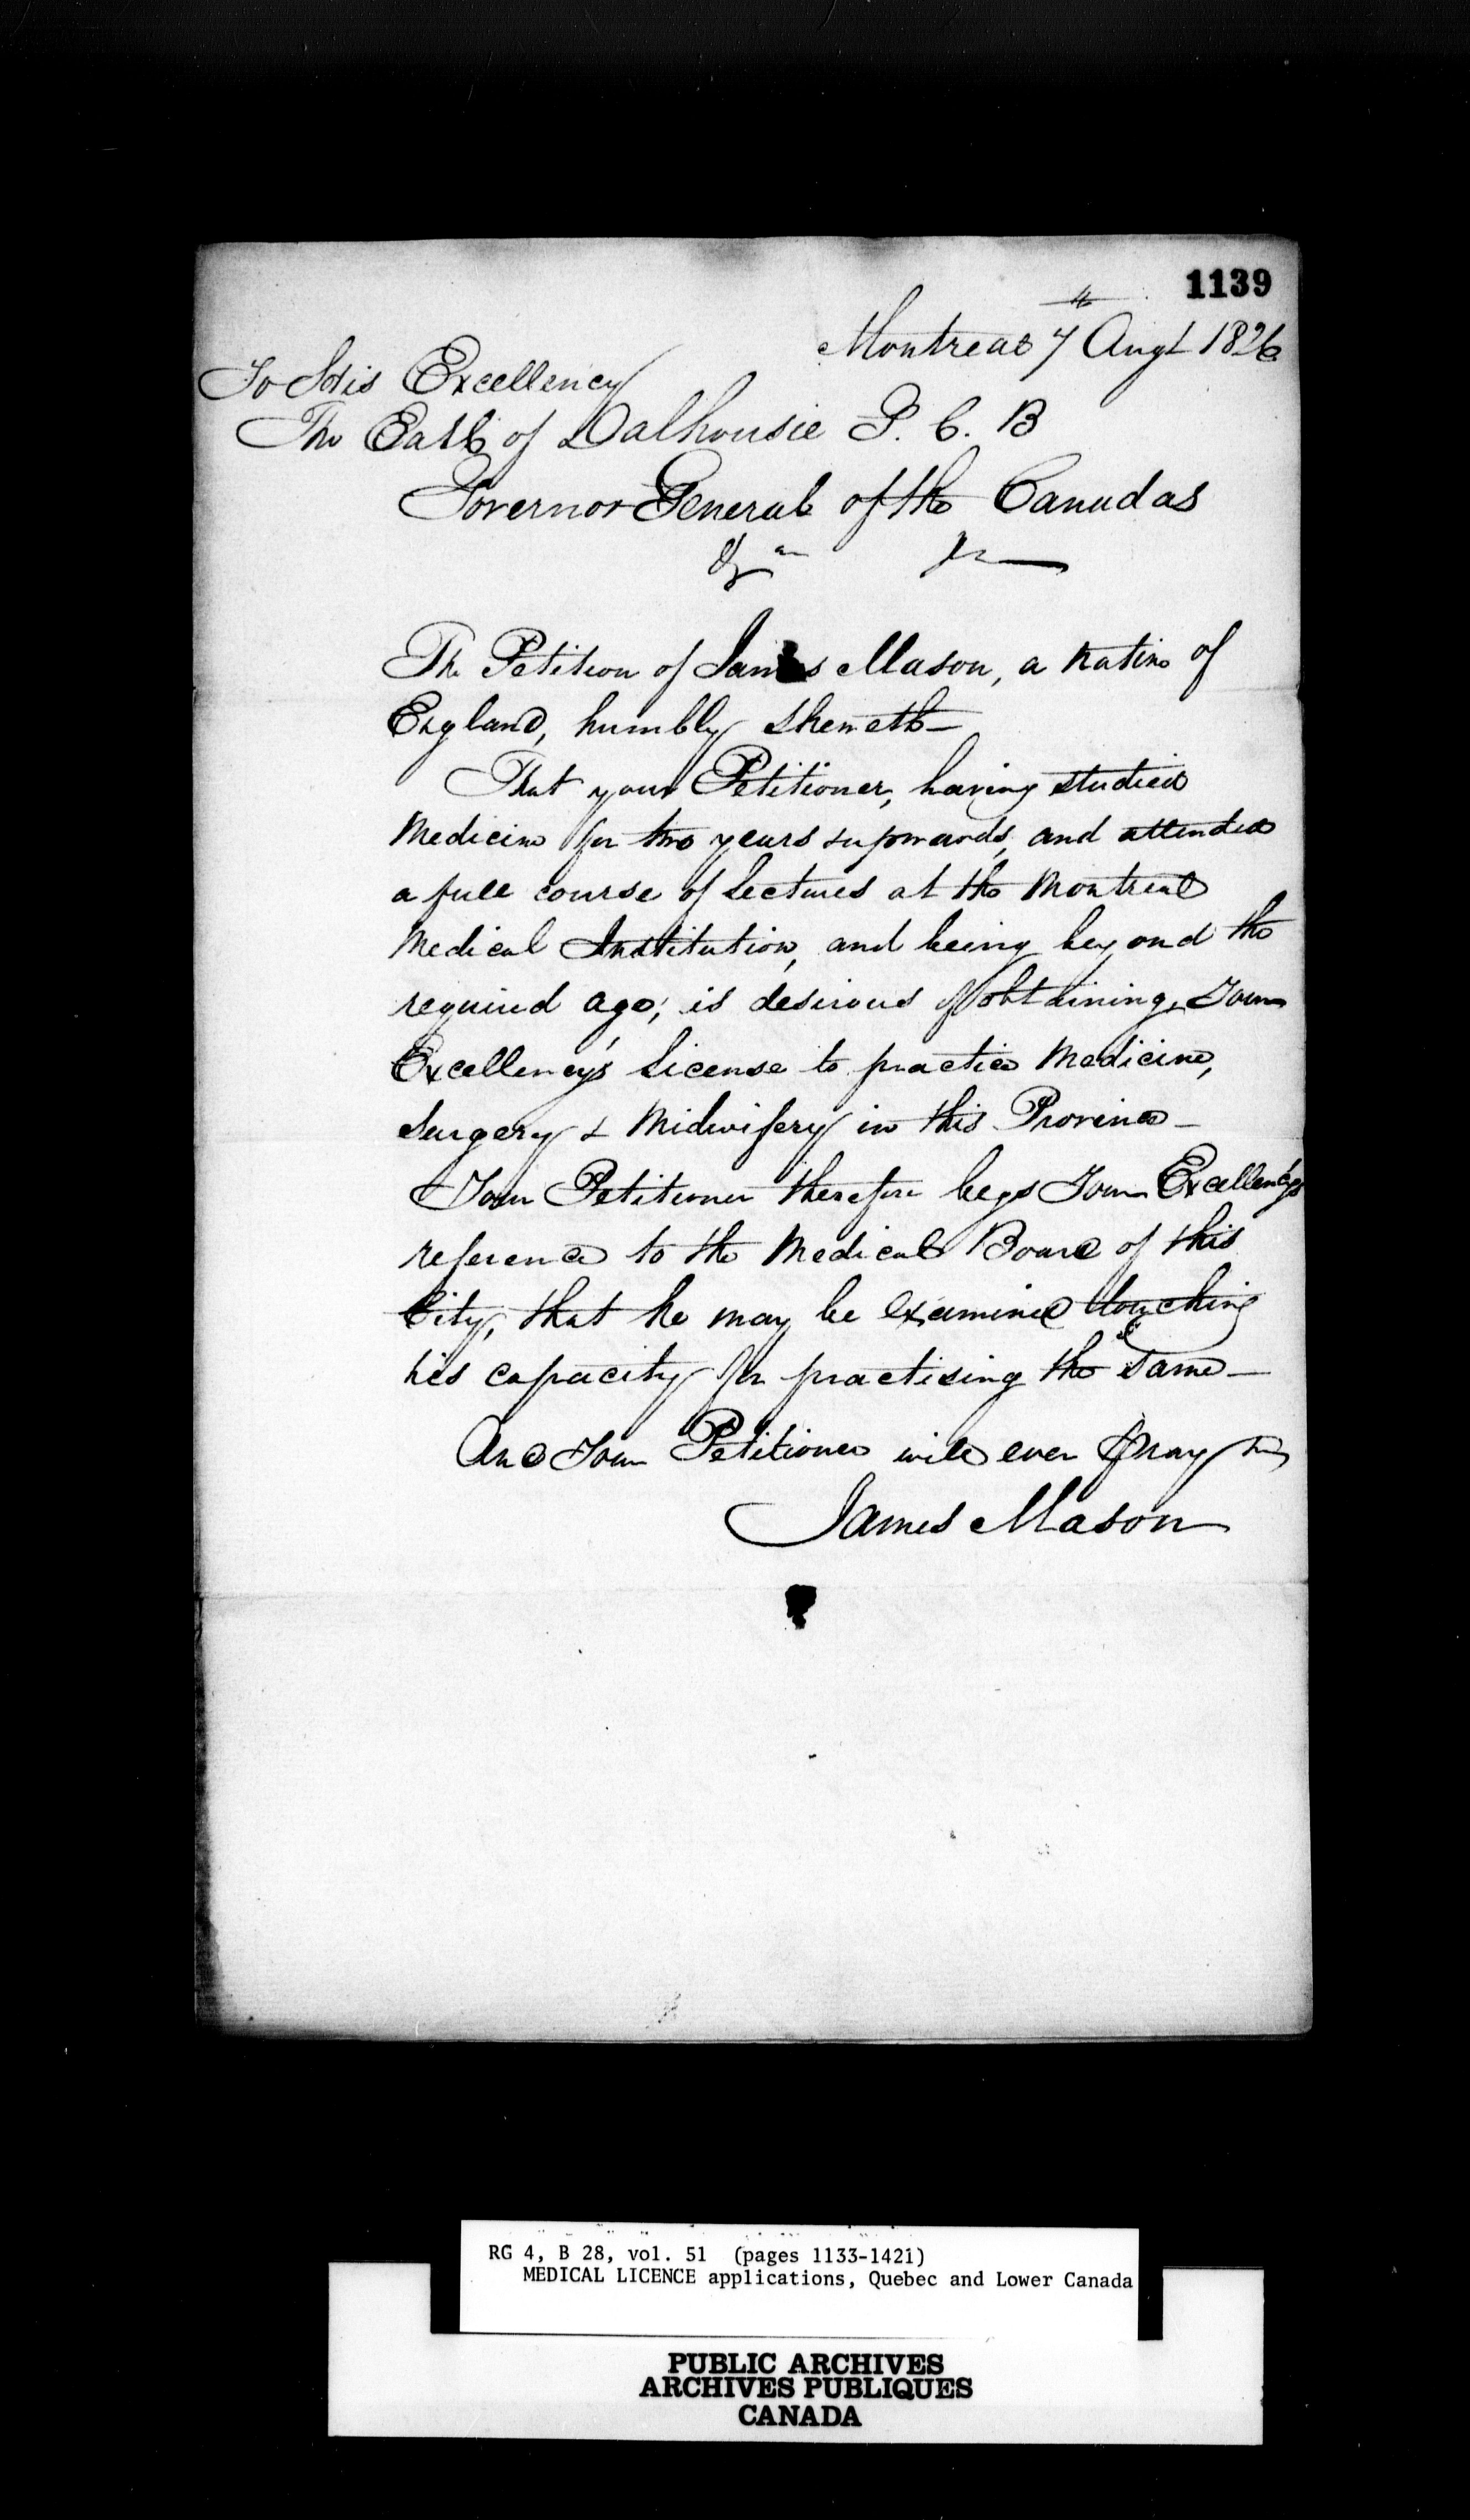 1139
Montreal 7th Augt 1826
To His Excellency
The Earl of Dalhousie G. C. B
Governor General of the Canadas
&c &c
The Petition of James Mason, a native of
England, humbly sheweth—
That your Petitioner, having studied
Medicine for two years & upwards, and attended
a full course of Lectures at the Montreal
Medical Institution, and being beyond the
required age; is desirous of obtaining, Your
Excellency's License to practice Medicine,
Surgery & Midwifery in this Province—
Your Petitioner therefore begs Your Excellency's
reference to the Medical Board of this
City, that he may be examined touching
his capacity for practising the same—
And Your Petitioner will ever pray
James Mason
RG 4, B 28, vol. 51 (pages 1133-1421)
MEDICAL LICENCE applications, Quebec and Lower Canada
PUBLIC ARCHIVES
ARCHIVES PUBLIQUES
CANADA